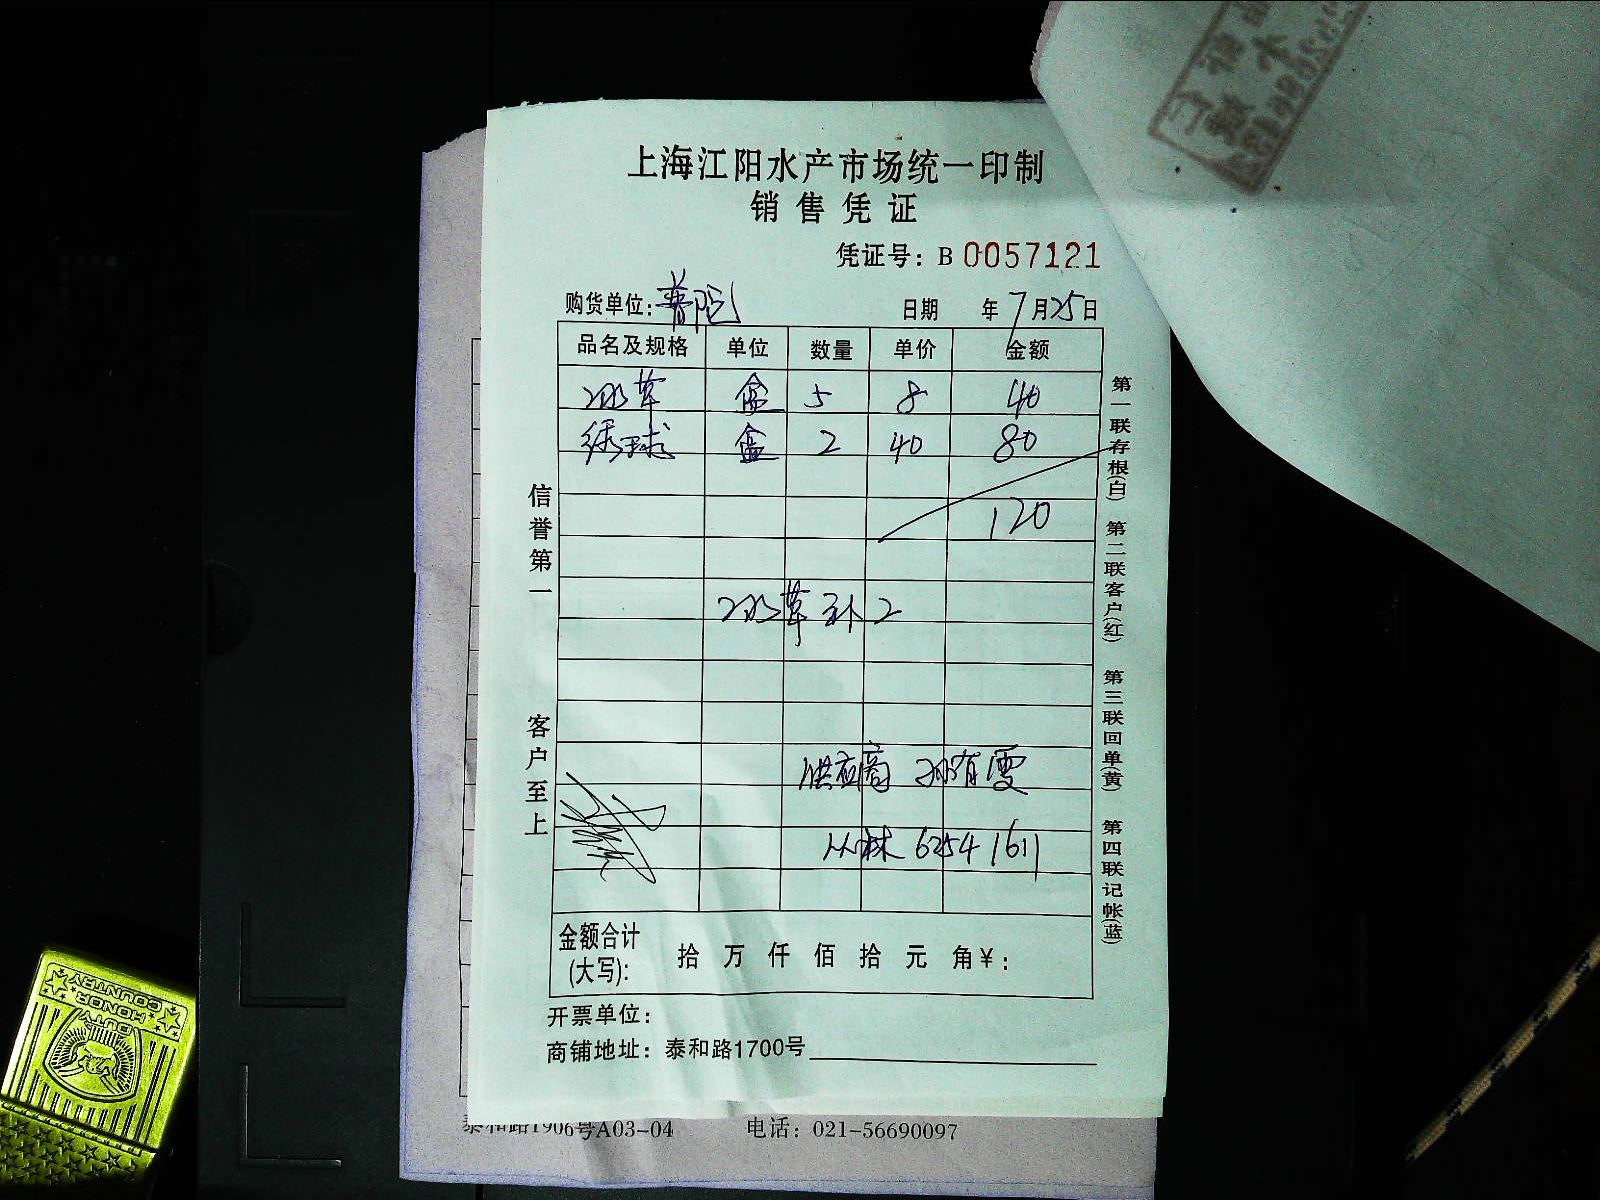 上海江阳水产市场统一印制
销售凭证
凭证号：B 0057121
购货单位：普陀 日期 年 7月25日
品名及规格 单位 数量 单价 金额
冰草 盒 5 8 40
绣球 盒 2 40 80
120
冰草补2
供应商 孙有雯
丛林 62541611
金额合计(大写)： 拾 万 仟 佰 拾 元 角 ¥：
开票单位：
商铺地址：泰和路1700号
信誉第一
客户至上
第一联存根(白) 第二联客户(红) 第三联回单(黄) 第四联记帐(蓝)
泰和路1906号A03-04 电话：021-56690097
DUTY
HONOR
COUNTRY